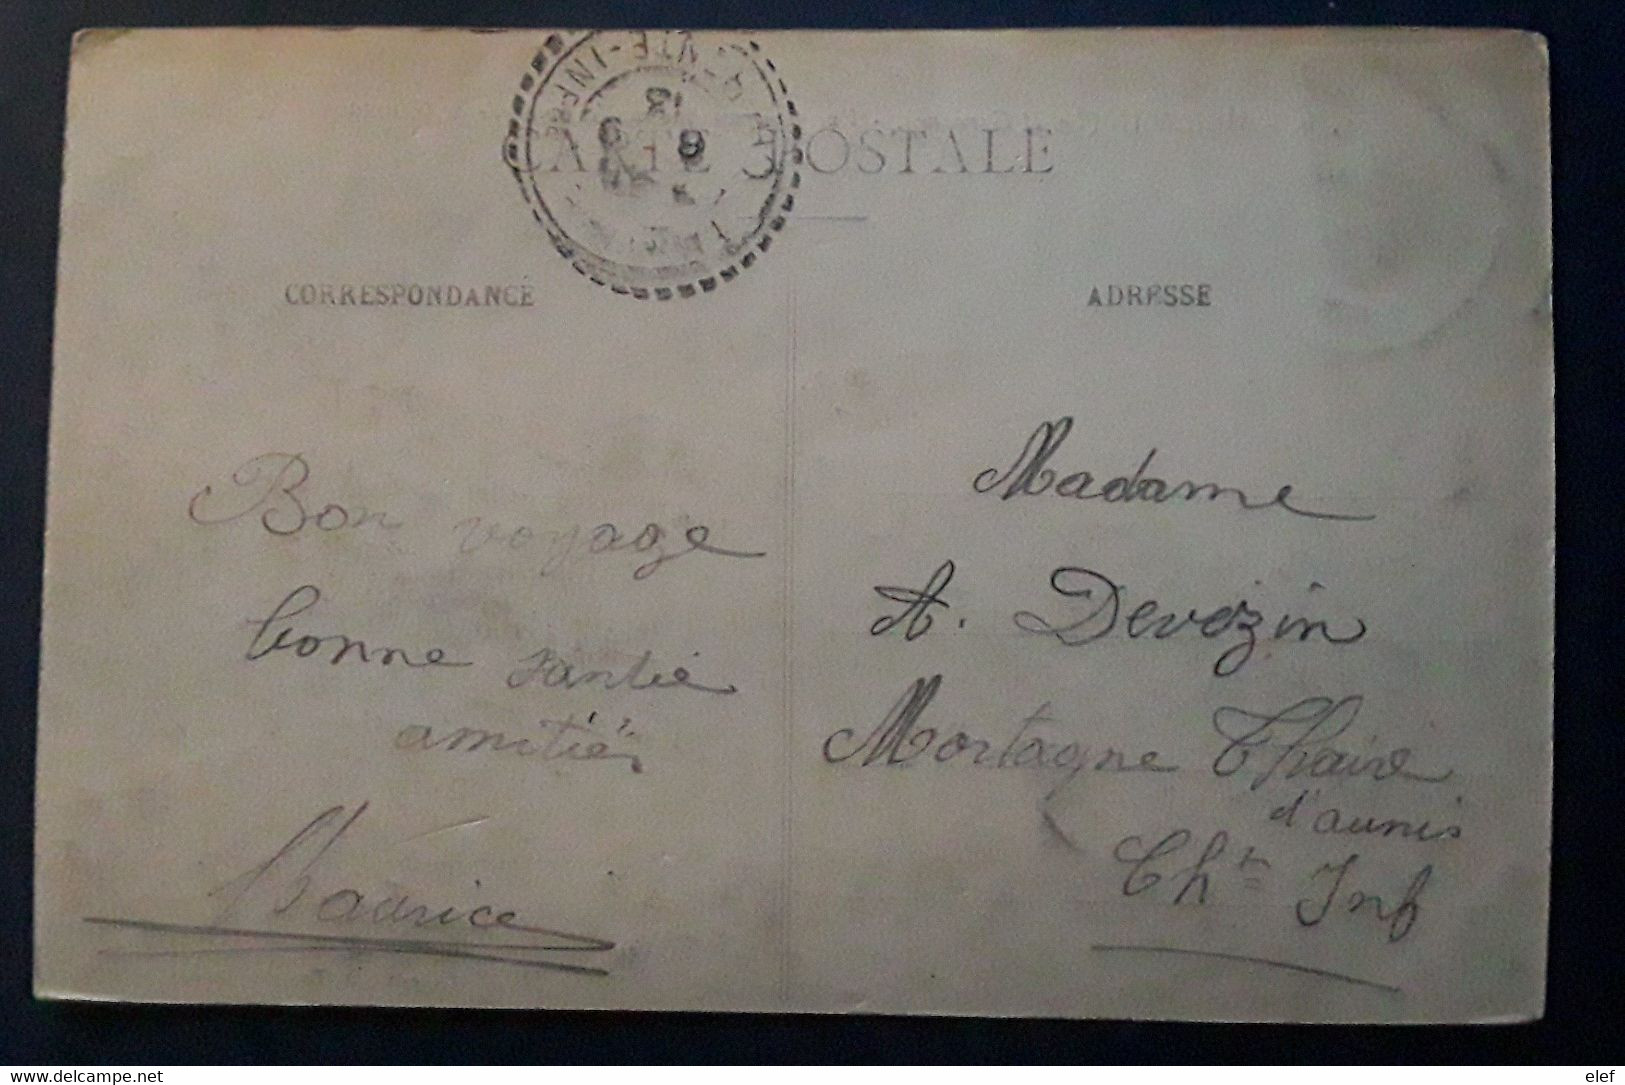 CARTE POSTALE
CORRESPONDANCE
Bon voyage
bonne santié
amitiés
Maurice
ADRESSE
Madame
A. Devezin
Mortagne Thairé
d'aunis
Chte Inf
delcampe.net
elef